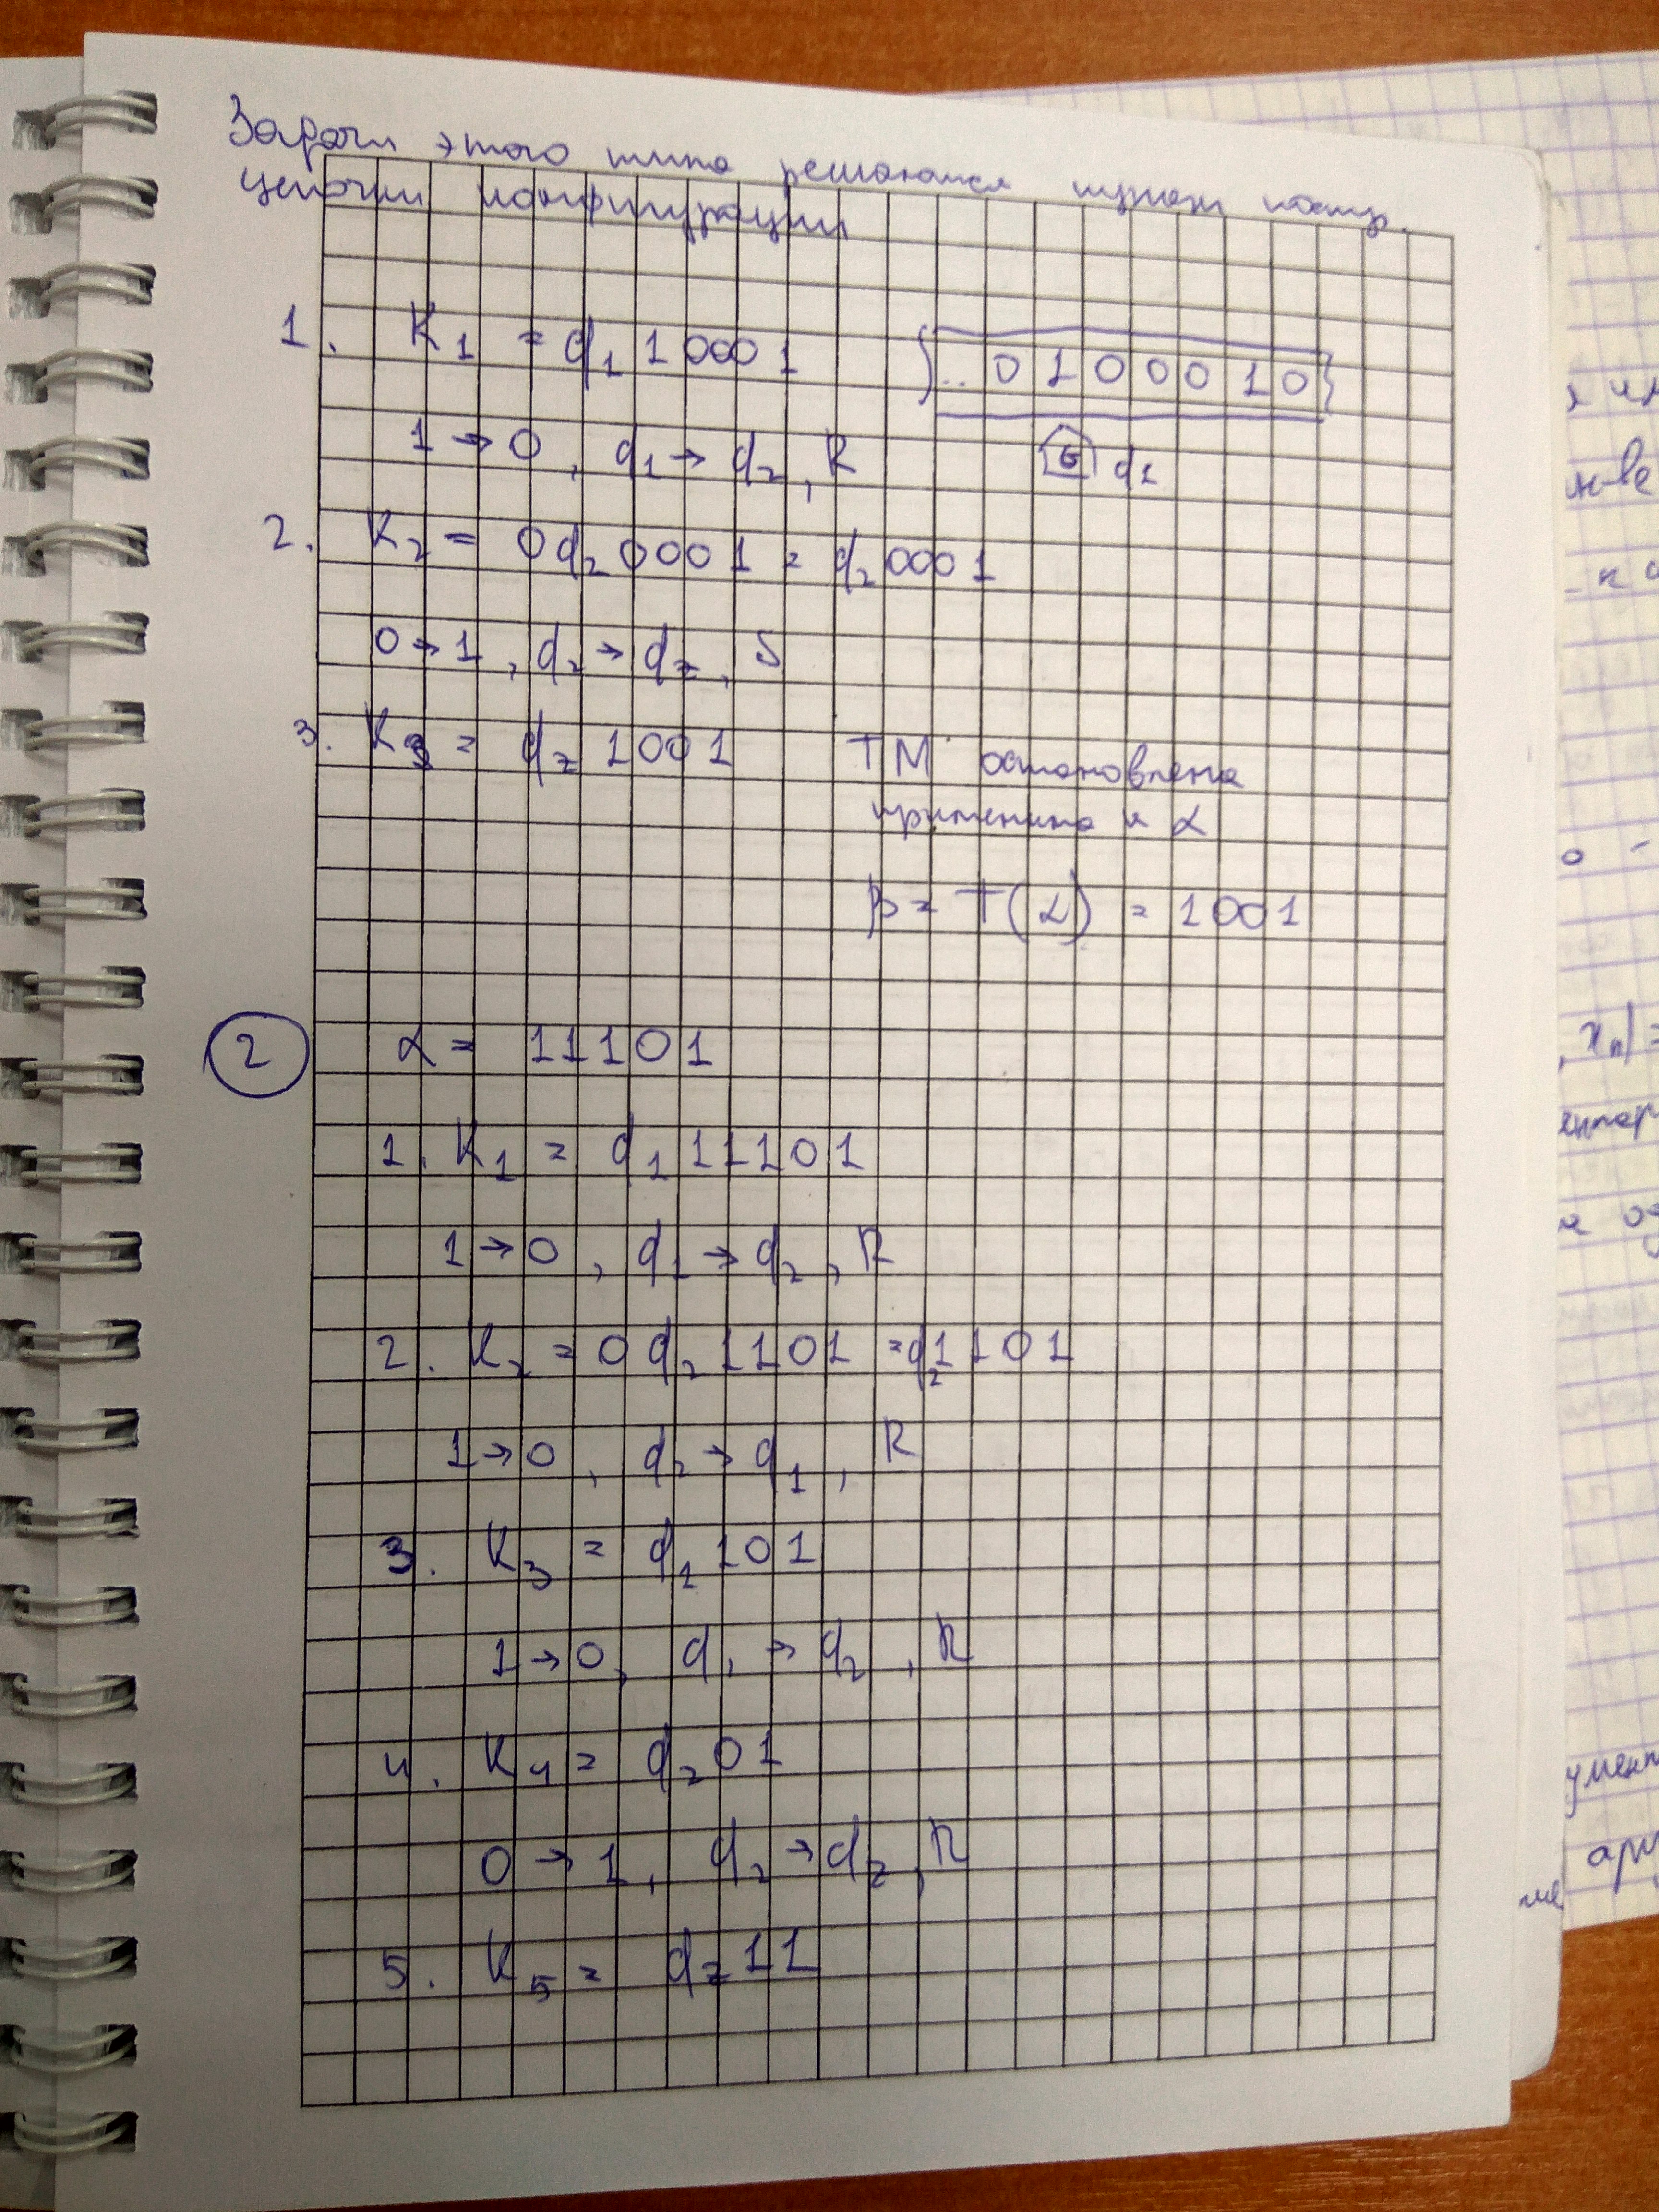 Задачи этого типа решаются путем постр.
цепочки конфигураций
1. K₁ = q₁ 10001
.. 0 1 0 0 0 1 0
1 → 0, q₁ → q₂, R
q₁
2. K₂ = 0q₂0001 = q₂0001
0 → 1, q₂ → q_z, S
3. K₃ = q_z 1001 ТМ остановлена
применима к α
β = T(α) = 1001
2 α = 11101
1. K₁ = q₁11101
1 → 0, q₁ → q₂, R
2. K₂ = 0q₂1101 = q₂1101
1 → 0, q₂ → q₁, R
3. K₃ = q₁101
1 → 0, q₁ → q₂, R
4. K₄ = q₂01
0 → 1, q₂ → q_z, R
5. K₅ = q_z11